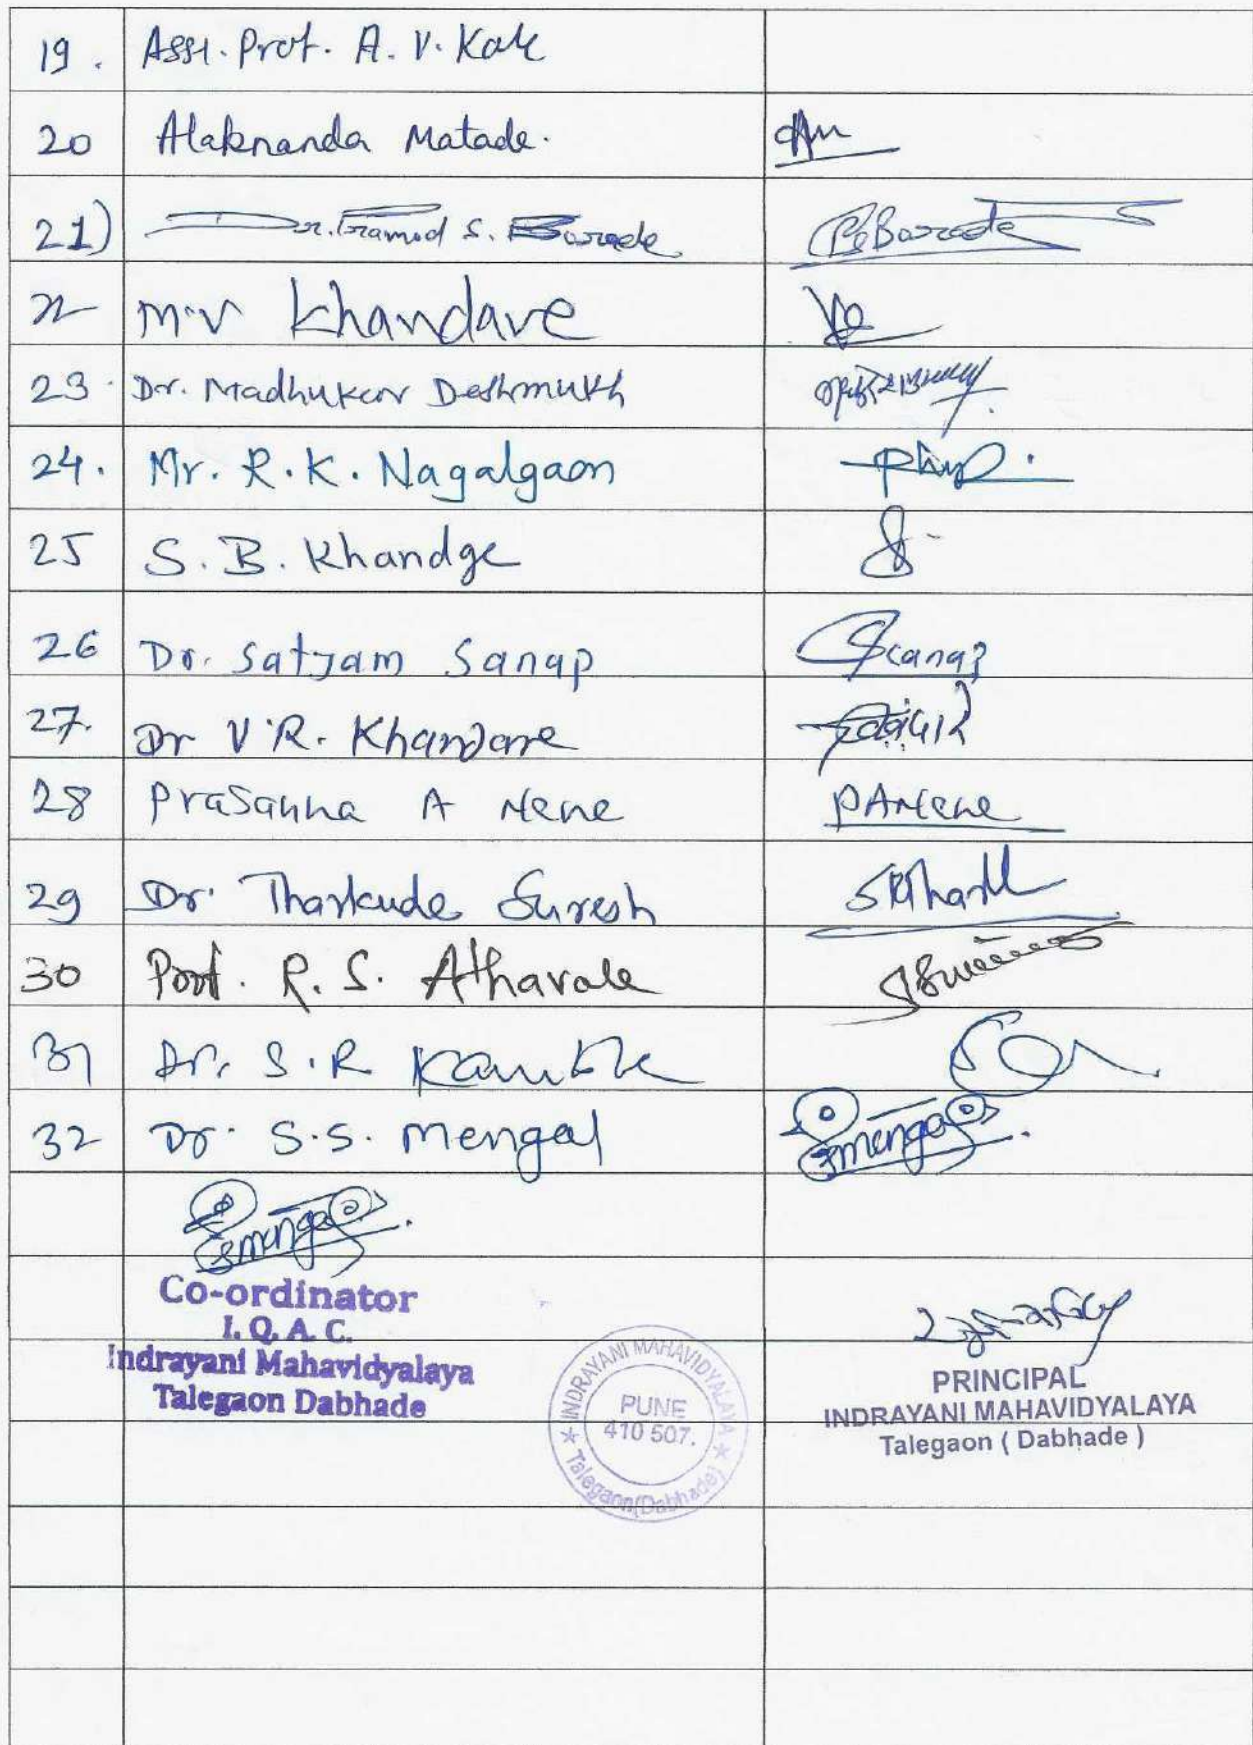 19. Asst. Prof. A. V. Kale
20 Alaknanda Matade.
21) Dr. Pramod S. Borade PSBorade
22 M.V Khandave
23. Dr. Madhukar Deshmukh
24. Mr. R.K. Nagalgaon
25 S.B. Khandge
26 Dr. Satyam Sanap Ssanap
27. Dr V.R. Khandare
28 Prasanna A Nene PANene
29 Dr. Tharkude Suresh
30 Prof. R.S. Athavale
31 Dr. S.R Kamble
32 Dr. S.S. Mengal Smengal
Smengal
Co-ordinator
I. Q. A. C.
Indrayani Mahavidyalaya
Talegaon Dabhade
INDRAYANI MAHAVIDYALAYA
PUNE
410 507.
Talegaon(Dabhade)
PRINCIPAL
INDRAYANI MAHAVIDYALAYA
Talegaon ( Dabhade )